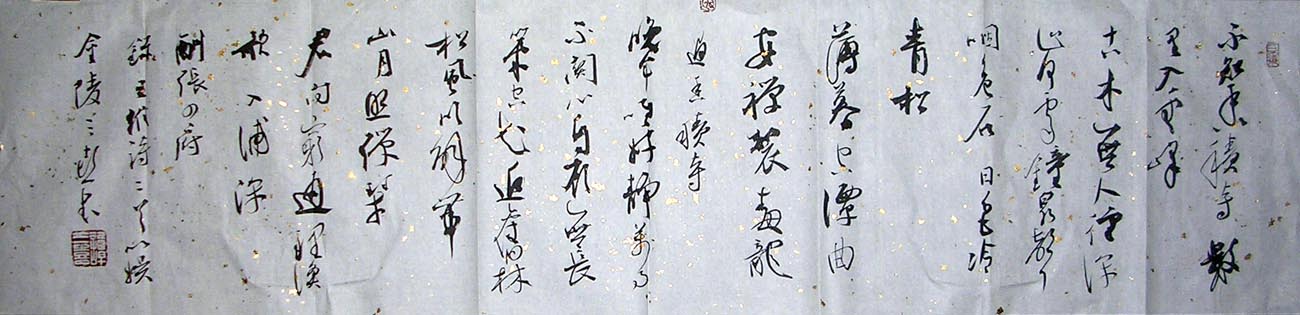 不知香積寺 數
里入雲峰
古木無人徑深
山何處鐘泉聲
咽危石 日色冷
青松
薄暮空潭曲
安禪制毒龍
過香積寺
晚年唯好靜萬事
不關心自顧無長
策空知返舊林
松風吹解帶
山月照彈琴
君問窮通理漁
歌入浦深
酬張少府
錄王維詩二首
金陵